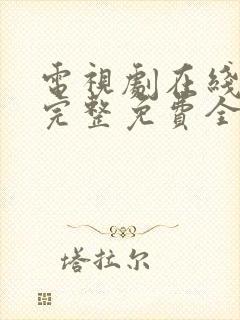 電視劇在綫
完整免費全
塔拉尔